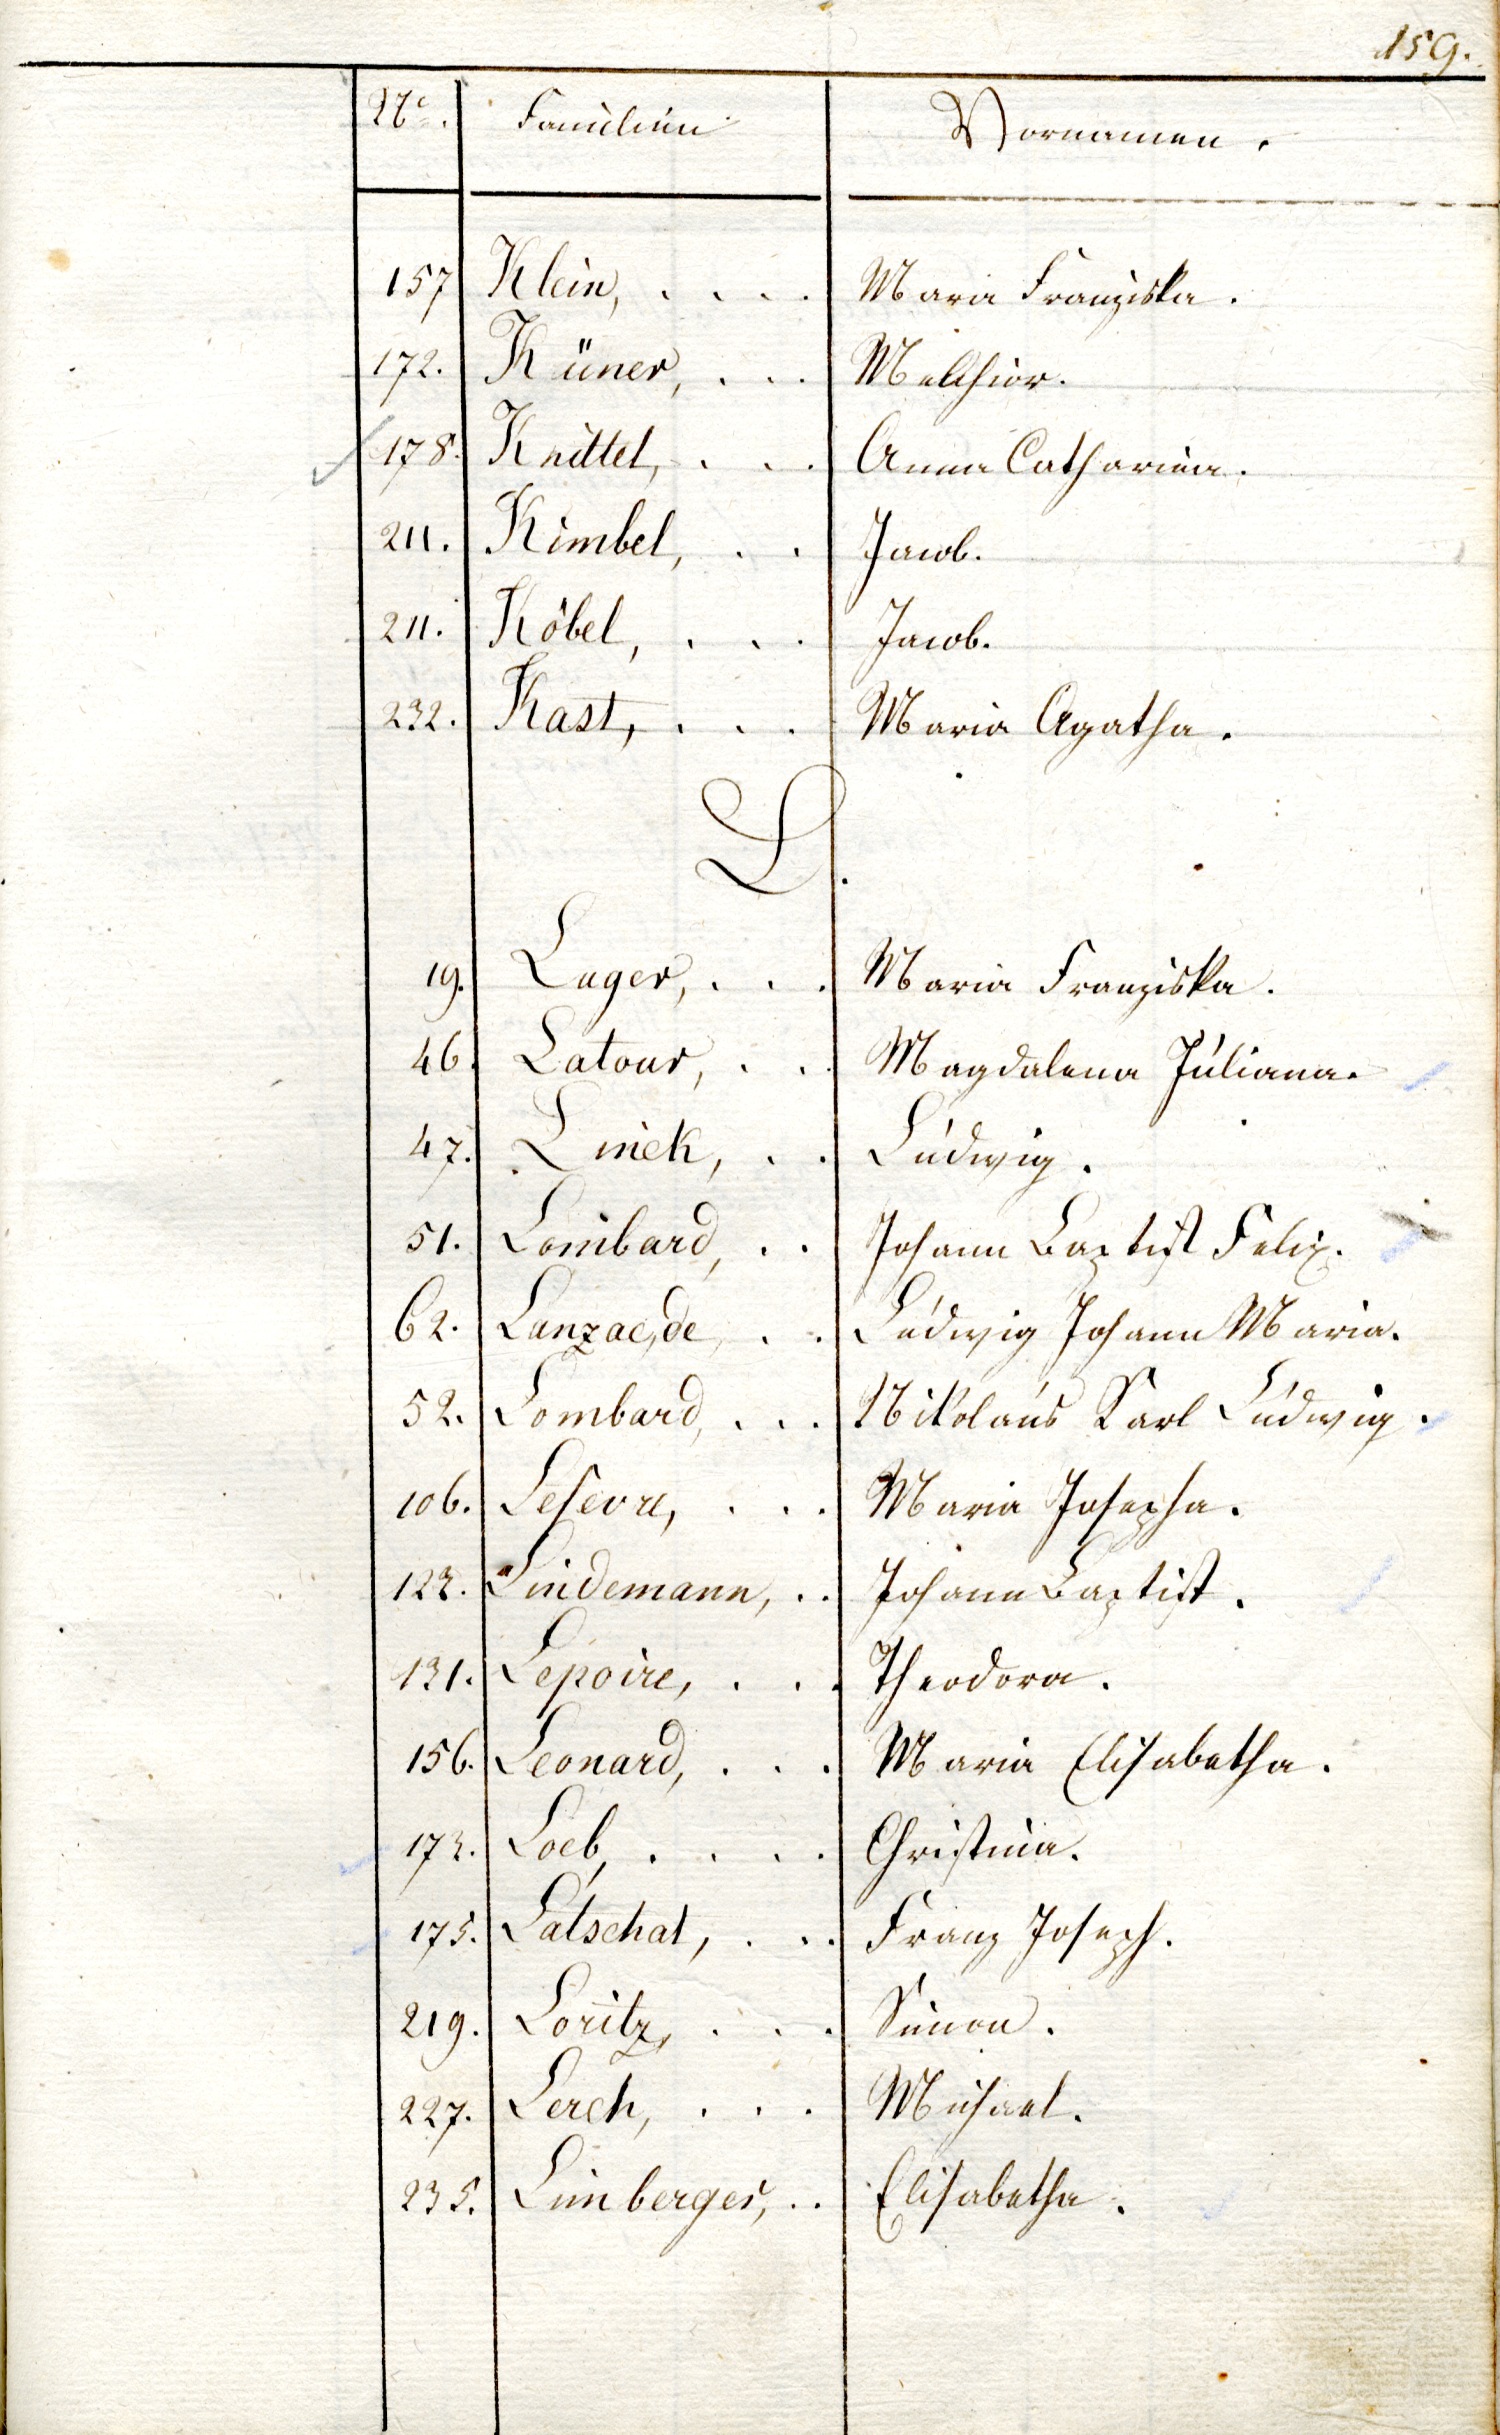 159.
No. Familien Vornamen.
157 Klein, . . . . Maria Franziska.
172. Küner, . . . Melchior.
178. Knittel, . . . Anna Catharina.
211. Kimbel, . . Jacob.
211. Köbel, . . . Jacob.
232. Kast, . . . Maria Agatha.
L.
19. Luger, . . . Maria Franziska.
46. Latour, . . . Magdalena Juliana.
47. Linck, . . Ludwig.
51. Lombard, . . Johann Baptist Felix.
62. Lanzac, de, . . Ludwig Johann Maria.
52. Lombard, . . . Nikolaus Karl Ludwig.
106. Lefevre, . . . Maria Josepha.
123. Lindemann, . . Johann Baptist.
131. Lepoire, . . . Theodora.
156. Leonard, . . . Maria Elisabetha.
173. Loeb, . . . . Christina.
175. Latschat, . . . Franz Joseph.
219. Loritz, . . . Simon.
227. Lerch, . . . Michael.
235. Limberger, . . Elisabetha.